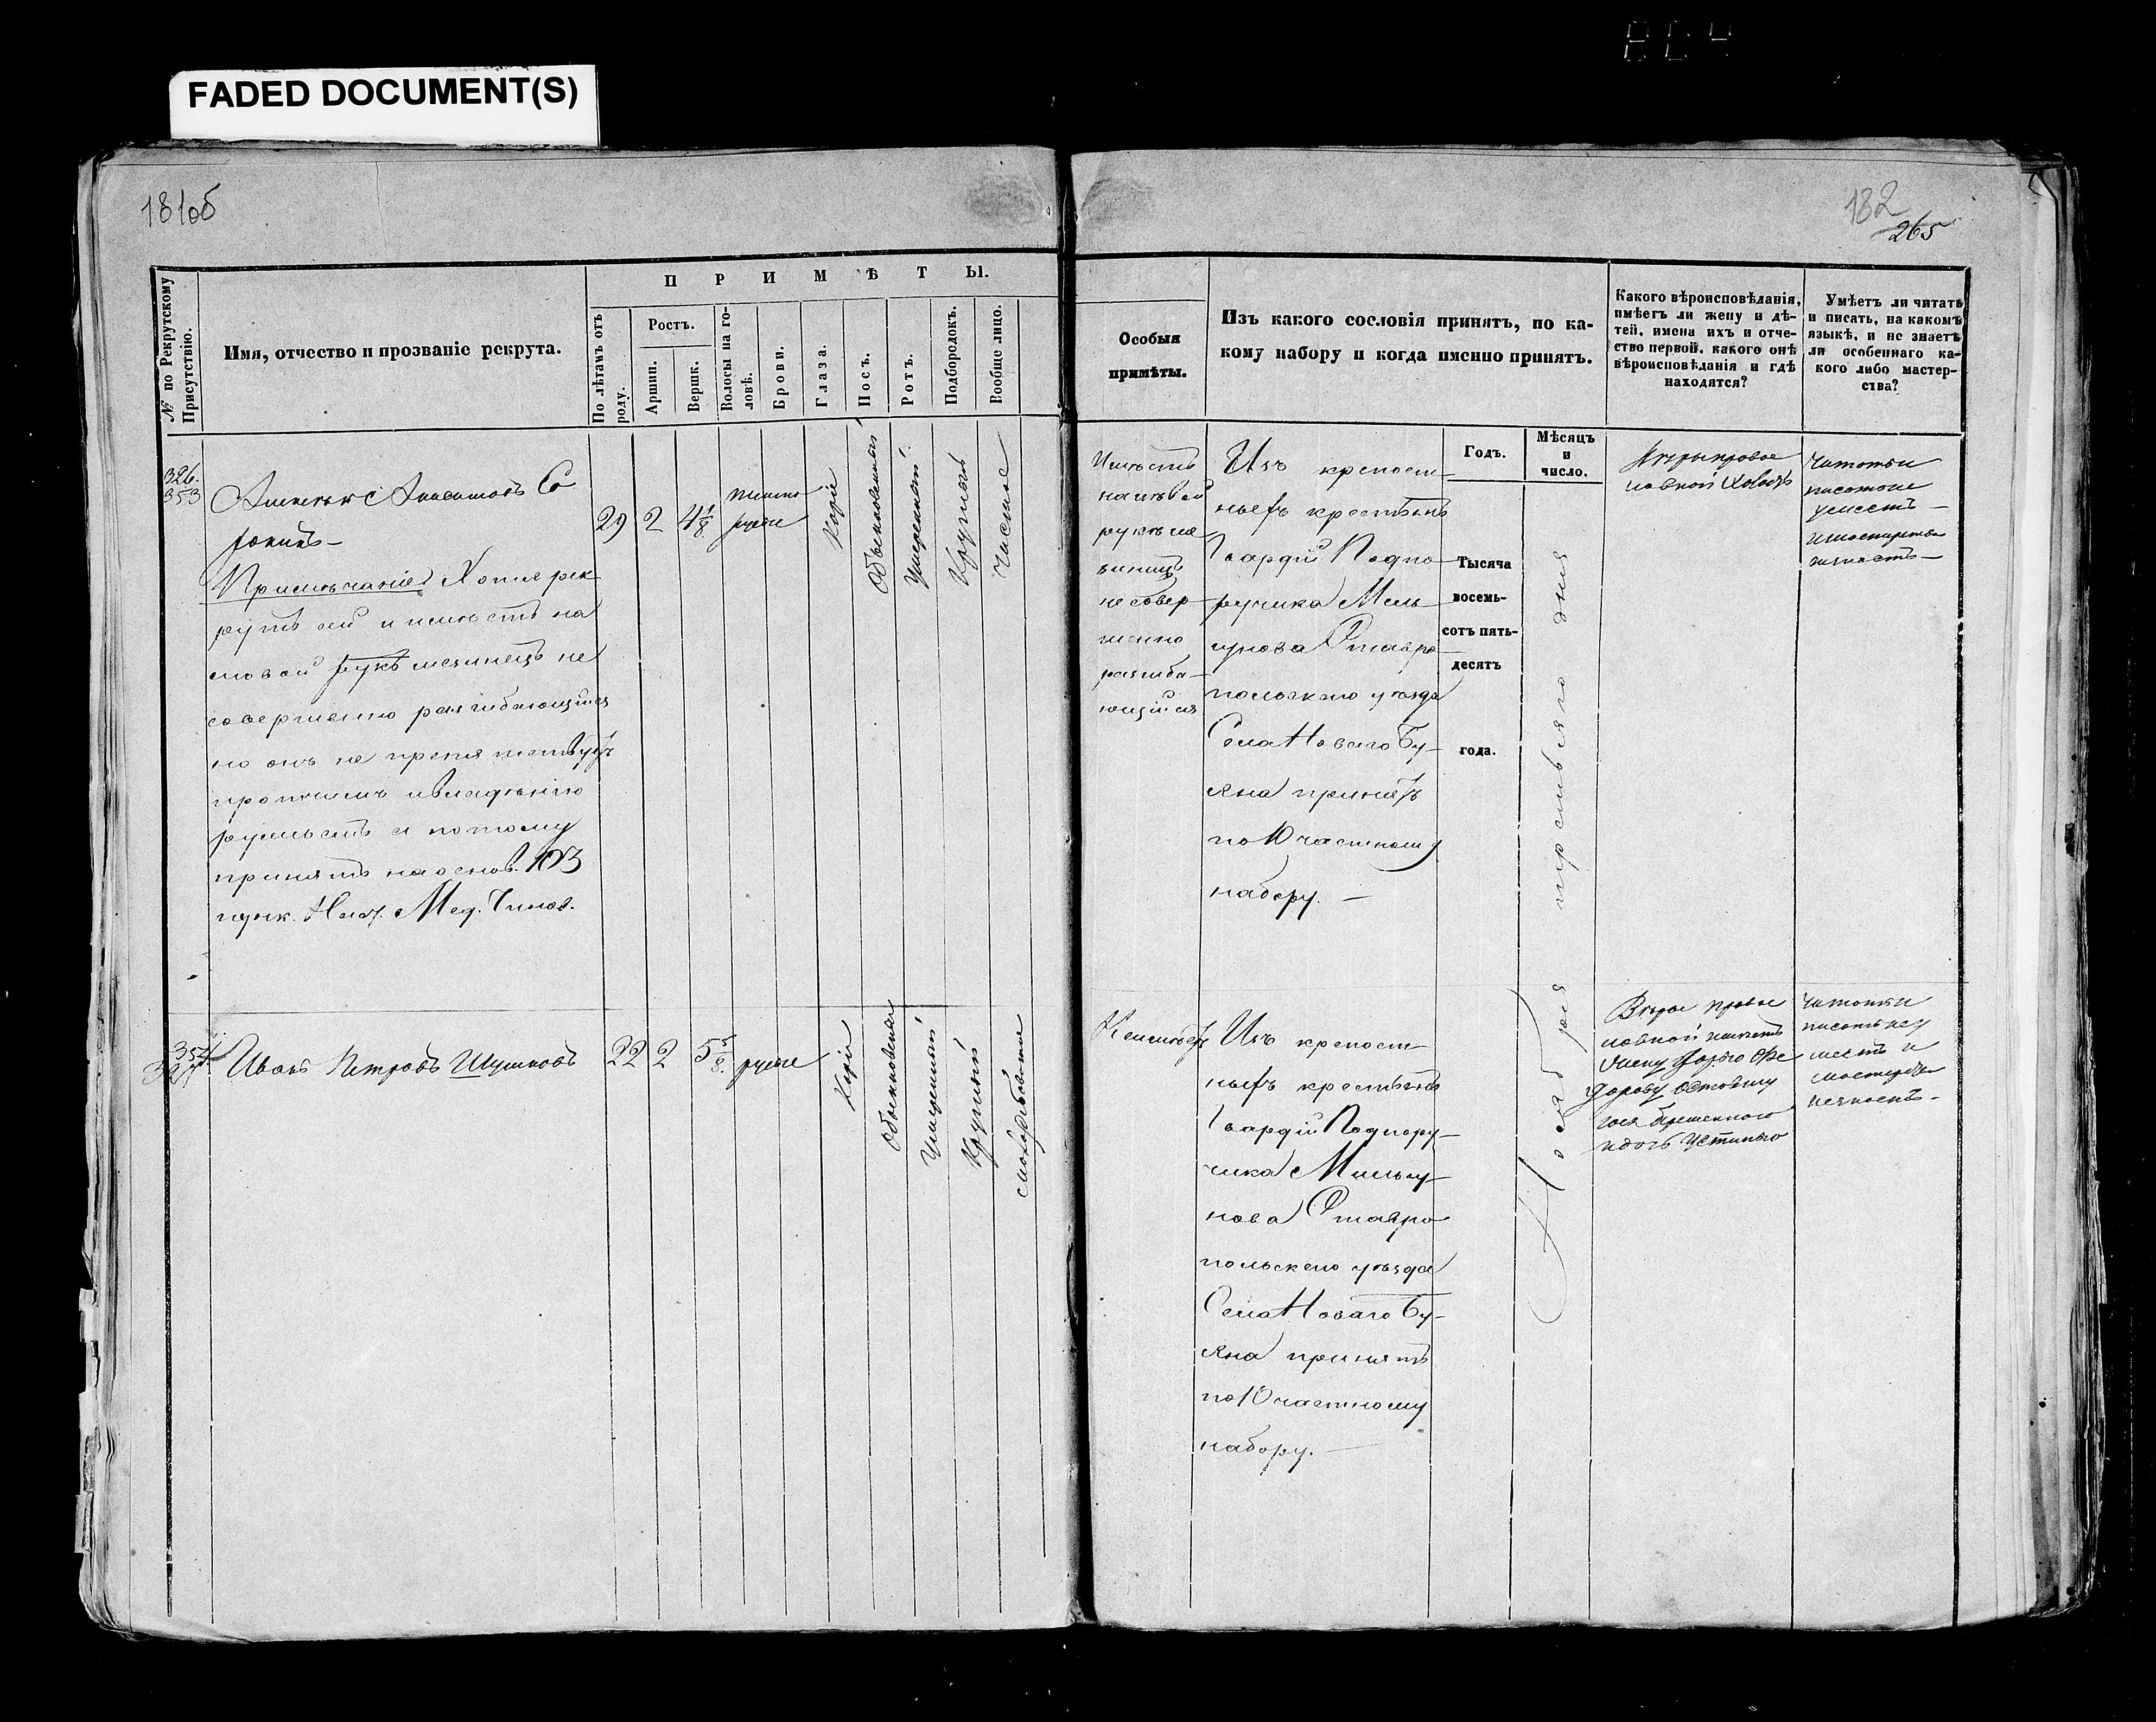 FADED DOCUMENT(S)
181об
182
265
№ по Рекрутскому Присутствію.
Имя, отчество и прозваніе рекрута.
П Р И М Ѣ Т Ы.
По лѣтамъ отъ роду.
Ростъ.
Аршин.
Вершк.
Волосы на головѣ.
Брови.
Глаза.
Носъ.
Ротъ.
Подбородокъ.
Вообще лицо.
Особыя
примѣты.
Изъ какого сословія принятъ, по ка-
кому набору и когда именно принятъ.
Годъ.
Мѣсяцъ
и
число.
Какого вѣроисповѣданія,
имѣетъ ли жену и дѣ-
тей, имена ихъ и отче-
ство первой, какого онѣ
вѣроисповѣданія и гдѣ
находятся?
Умѣетъ ли читать
и писать, на какомъ
языкѣ, и не знаетъ
ли особеннаго ка-
кого либо мастер-
ства?
326.
353
Примѣчаніе Хотя рек
рутъ сей и имѣетъ на
лѣвой рукѣ мизинецъ не
совершенно разгибающійся
но онъ не препятствуетъ
принятъ на основ. 103
пунк. Наст. Мед. Чинов.
29
2
4 1/8
темно
русые
Каріе
Обыкновенный
Умеренный
Круглый
Чистое
Имѣетъ
на лѣвой
рукѣ ми
зинецъ
не совер
шенно
разгиба-
ющійся
Изъ крепост
ныхъ крестьянъ
Гвардіи Подпо
ручика Мель
гунова Ставро
польскаго уѣзда
Села Новаго Бу-
яна принятъ
по 10 частному
набору. —
Тысяча
восемь-
сотъ пять-
десятъ
года.
Ноября третьяго дня
Вѣры право
славной Холостъ
Читать и
писать не
умеетъ —
и мастерства
незнаетъ —
354
Иванъ Петровъ Шушковъ
22
2
5 5/8.
русые
Каріе
Обыкновенная
Умеренный
Круглый
Неимѣетъ
Изъ крепост
ныхъ крестьянъ
Гвардіи Подпору-
чика Мельгу-
нова Ставро
польскаго уѣзда
Села Новаго Бу-
яна принятъ
по 10 частному
набору. —
Веры право
славной имѣетъ
жену Дарью Фе
дорову
и дочь Устинью
Читать и
писать неу
меетъ и
мастерства
незнаетъ -